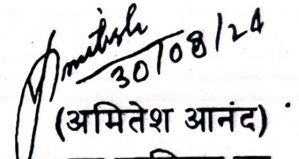 Amitesh
30/08/24
(अमितेश आनंद)